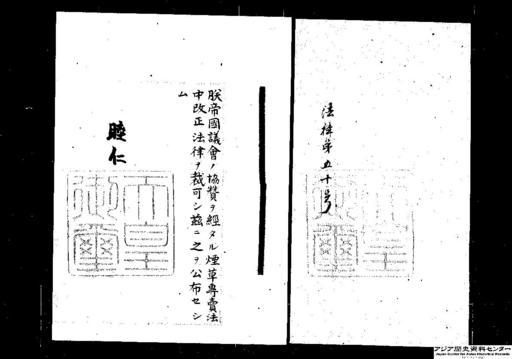 法律第五十号
朕帝國議會ノ協賛ヲ經タル煙草專賣法
中改正法律ヲ裁可シ茲ニ之ヲ公布セシ
ム
睦仁
天皇
御璽
アジア歴史資料センター
Japan Center for Asian Historical Records